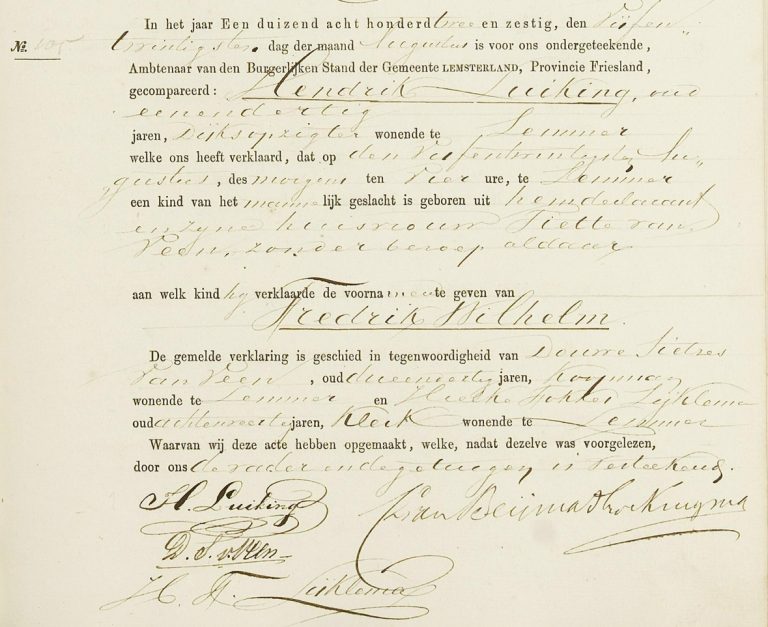 In het jaar Een duizend acht honderd twee en zestig, den Vijfen„
No. 105 twintigsten dag der maand Augustus is voor ons ondergeteekende,
Ambtenaar van den Burgerlijken Stand der Gemeente LEMSTERLAND, Provincie Friesland,
gecompareerd: Hendrik Luiking, oud
eenendertig
jaren, Dijksopzigter wonende te Lemmer
welke ons heeft verklaard, dat op den Vijfentwintigsten Au„
„gustus, des morgens ten Vier ure, te Lemmer
een kind van het mannelijk geslacht is geboren uit hem declarant
en zyne huisvrouw Tiette van
Veen, zonder beroep aldaar
aan welk kind hij verklaarde de voornamen te geven van
Fredrik Wilhelm.
De gemelde verklaring is geschied in tegenwoordigheid van Douwe Sietzes
van Veen, oud jaren, Koopman
wonende te Lemmer en Fokkes Lijklema
oud achtenveertig jaren, Klerk wonende te Lemmer
Waarvan wij deze acte hebben opgemaakt, welke, nadat dezelve was voorgelezen,
door ons de vader en de getuigen is geteekend.
H. Luiking
D. S. v. Veen
H. F. Lijklema